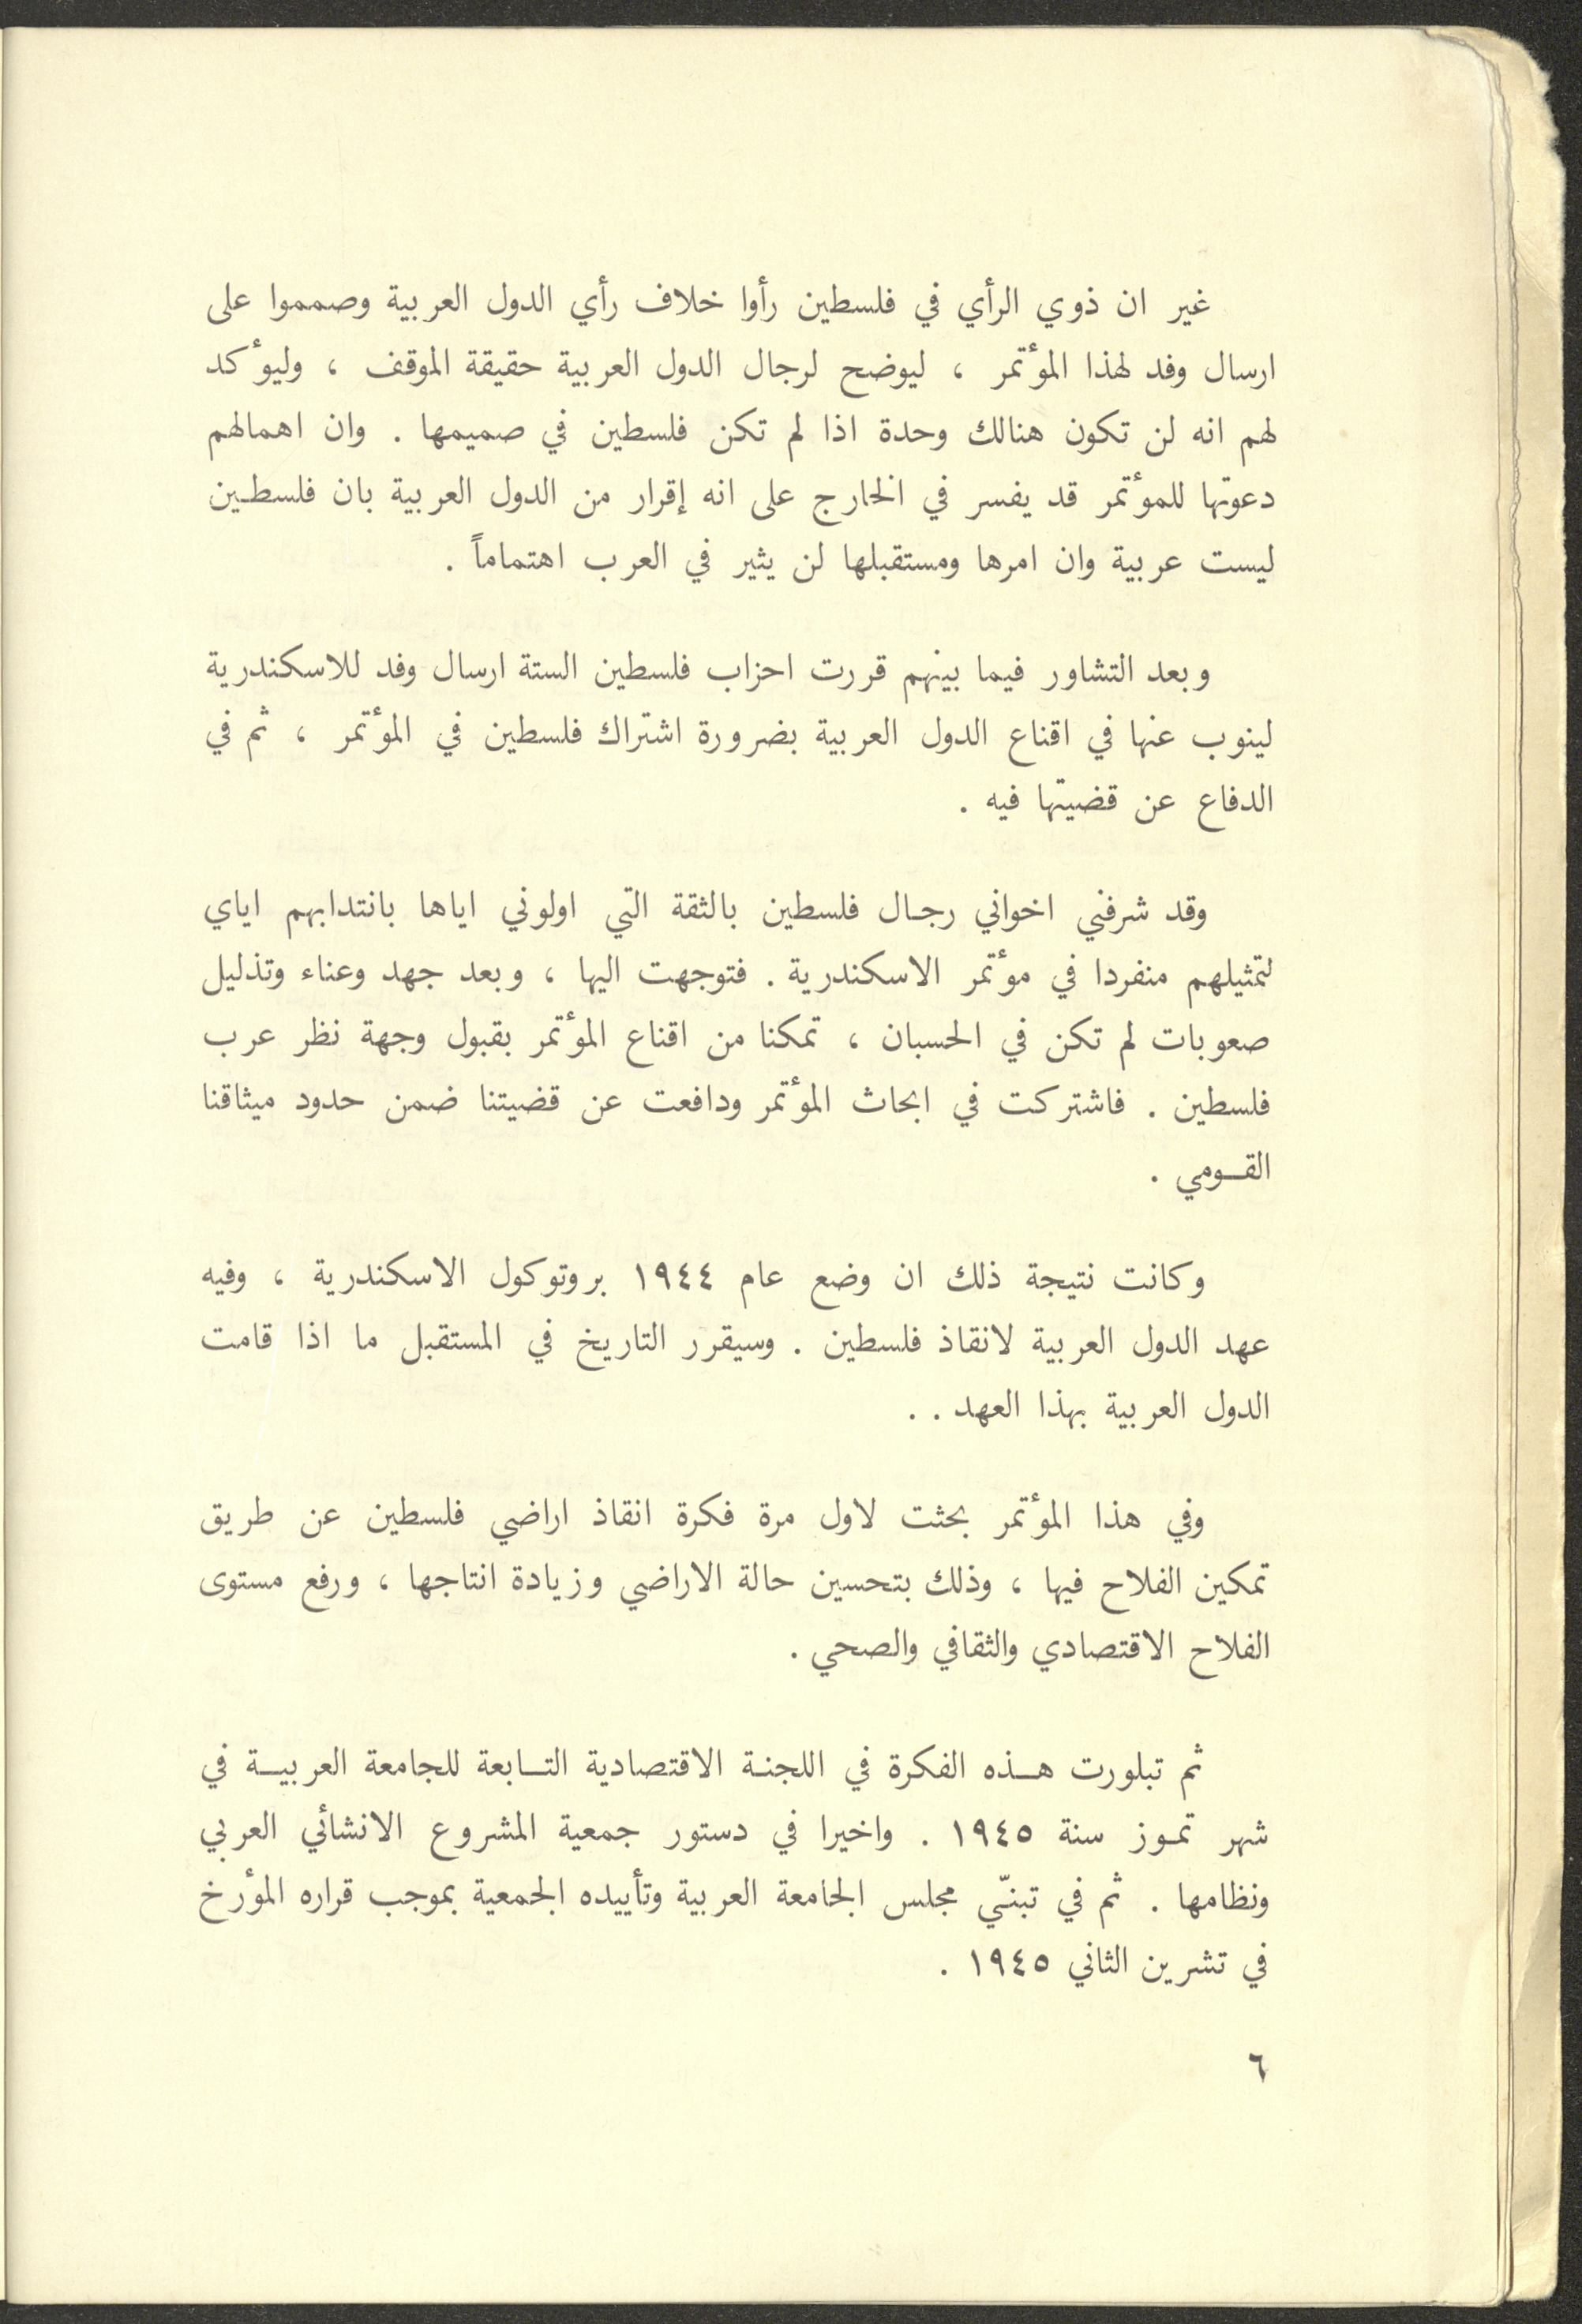 غير ان ذوي الرأي في فلسطين رأوا خلاف رأي الدول العربية وصمموا على
ارسال وفد لهذا المؤتمر ، ليوضح لرجال الدول العربية حقيقة الموقف ، وليؤكد
لهم انه لن تكون هنالك وحدة اذا لم تكن فلسطين في صميمها . وان اهمالهم
دعوتها للمؤتمر قد يفسر في الخارج على انه إقرار من الدول العربية بان فلسطين
ليست عربية وان امرها ومستقبلها لن يثير في العرب اهتماماً .
وبعد التشاور فيما بينهم قررت احزاب فلسطين الستة ارسال وفد للاسكندرية
لينوب عنها في اقناع الدول العربية بضرورة اشتراك فلسطين في المؤتمر ، ثم في
الدفاع عن قضيتها فيه .
وقد شرفني اخواني رجال فلسطين بالثقة التي اولوني اياها بانتدابهم اياي
لتمثيلهم منفردا في مؤتمر الاسكندرية . فتوجهت اليها ، وبعد جهد وعناء وتذليل
صعوبات لم تكن في الحسبان ، تمكنا من اقناع المؤتمر بقبول وجهة نظر عرب
فلسطين . فاشتركت في ابحاث المؤتمر ودافعت عن قضيتنا ضمن حدود ميثاقنا
القـومي .
وكانت نتيجة ذلك ان وضع عام ١٩٤٤ بروتوكول الاسكندرية ، وفيه
عهد الدول العربية لانقاذ فلسطين . وسيقرر التاريخ في المستقبل ما اذا قامت
الدول العربية بهذا العهد . .
وفي هذا المؤتمر بحثت لاول مرة فكرة انقاذ اراضي فلسطين عن طريق
تمكين الفلاح فيها ، وذلك بتحسين حالة الاراضي وزيادة انتاجها ، ورفع مستوى
الفلاح الاقتصادي والثقافي والصحي .
ثم تبلورت هـذه الفكرة في اللجنة الاقتصادية التـابعة للجامعة العربيـة في
شهر تمـوز سنة ١٩٤٥ . واخيرا في دستور جمعية المشروع الانشائي العربي
ونظامها . ثم في تبنّي مجلس الجامعة العربية وتأييده الجمعية بموجب قراره المؤرخ
في تشرين الثاني ١٩٤٥ .
٦